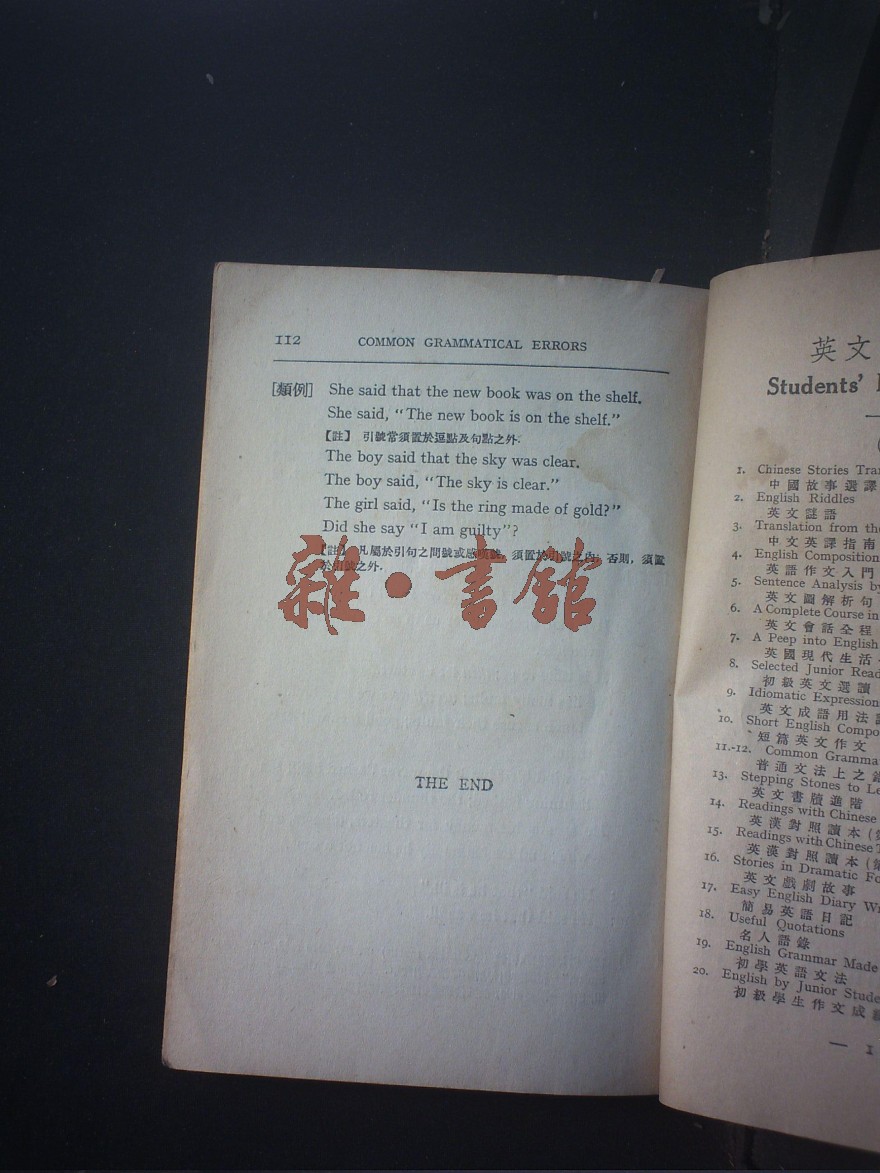 112 COMMON GRAMMATICAL ERRORS
[類例] She said that the new book was on the shelf.
She said, "The new book is on the shelf."
【註】 引號常須置於逗點及句點之外.
The boy said that the sky was clear.
The boy said, "The sky is clear."
The girl said, "Is the ring made of gold?"
Did she say "I am guilty"?
【註】 凡屬於引句之問號或感嘆號, 須置於引號之內, 否則, 須置
於引號之外.
雜·書館
THE END
英文
Students'
1. Chinese Stories
中國故事選譯
2. English Riddles
英文謎語
3. Translation from the
中文英譯指南
4. English Composition
英語作文入門
5. Sentence Analysis by
英文圖解析句
6. A Complete Course in
英文會話全程
7. A Peep into English
英國現代生活
8. Selected Junior
初級英文選讀
9. Idiomatic
英文成語用法
10. Short English
短篇英文作文
11.-12. Common
普通文法上之
13. Stepping Stones to
英文書牘進階
14. Readings with Chinese
英漢對照讀本
15. Readings with Chinese
英漢對照讀本
16. Stories in Dramatic
英文戲劇故事
17. Easy English Diary
簡易英語日記
18. Useful Quotations
名人語錄
19. English Grammar Made
初學英語文法
20. English by Junior
初級學生作文成
— 1